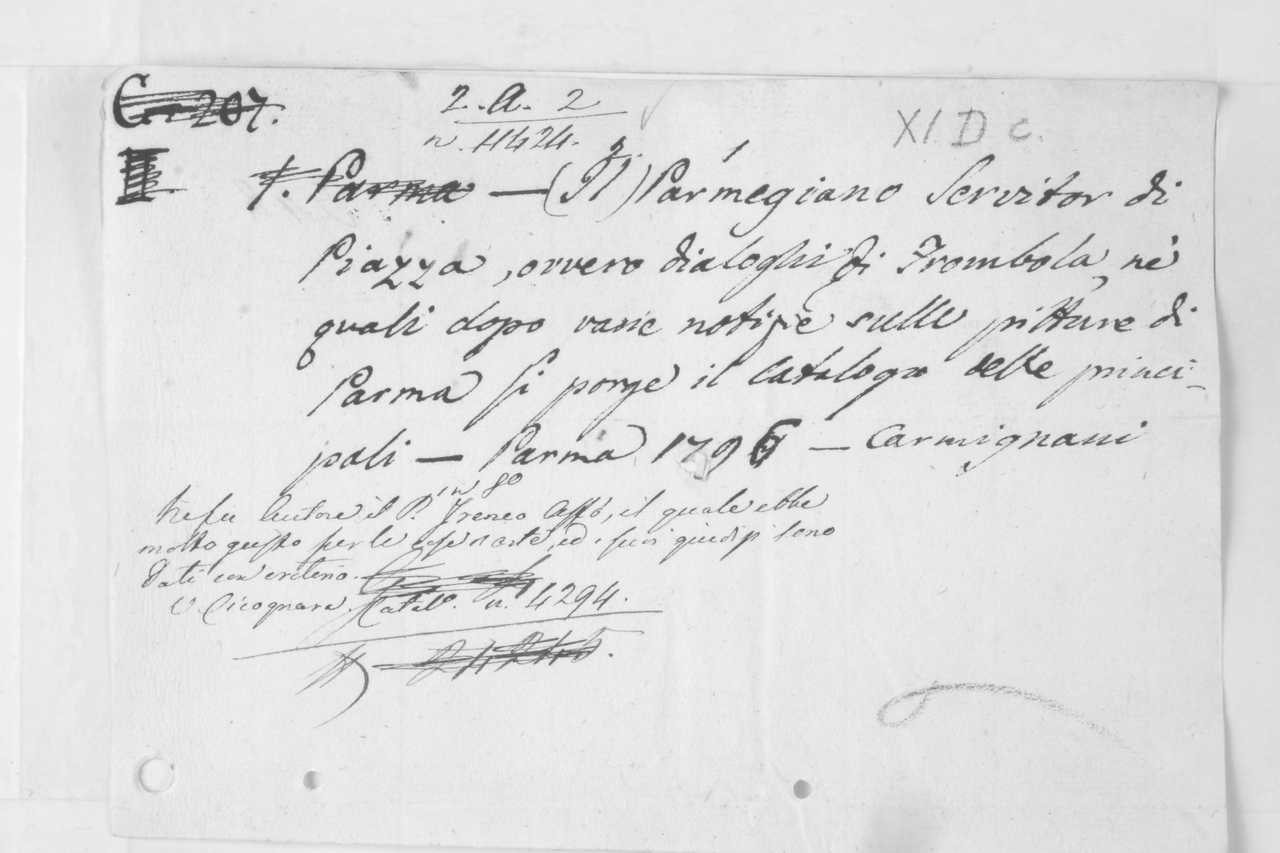 207.
2. A. 2
n. 4424.
XI D c.
Parma — (Il) Parmegiano Servitor di
Piazza, ovvero dialoghi di Frombola, ne'
quali dopo varie notizie sulle pitture di
Parma si porge il catalogo delle princi-
pali — Parma 1796 — Carmignani
in 8o
Ne fu Autore il P. Ireneo Affò, il quale ebbe
molto gusto per le cose d'arte, ed i suoi giudizj sono
dati con criterio.
V. Cicognara Catalo. n. 4294.